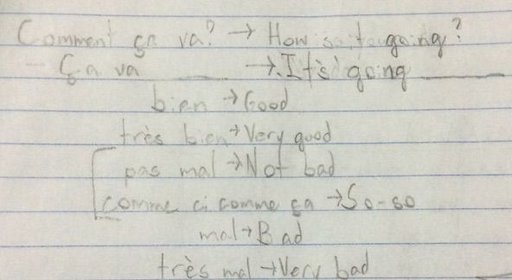 Comment ça va? → How is it going?
Ça va ______ → It's going ______
bien → Good
très bien → Very good
pas mal → Not bad
comme ci comme ça → So-so
mal → Bad
très mal → Very bad